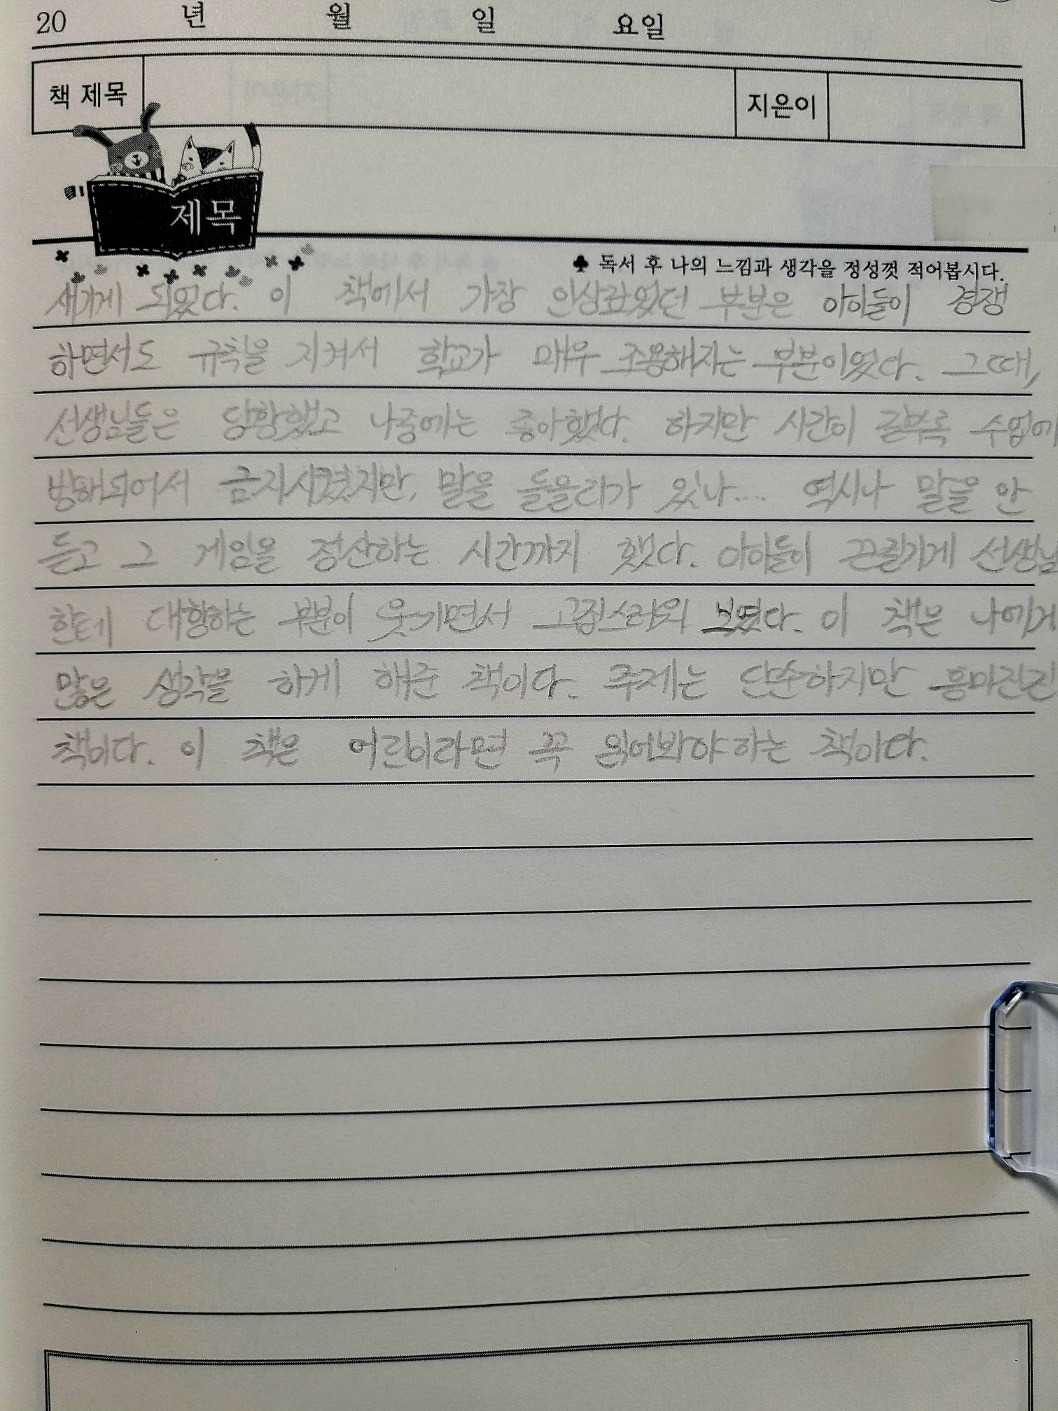 20 년 월 일 요일
책 제목 지은이
제목
♣ 독서 후 나의 느낌과 생각을 정성껏 적어봅시다.
새기게 되었다. 이 책에서 가장 인상깊었던 부분은 아이들이 경쟁
하면서도 규칙을 지켜서 학교가 매우 조용해지는 부분이었다. 그때,
선생님들은 당황했고 나중에는 좋아했다. 하지만 시간이 갈수록 수업에
방해되어서 금지시켰지만, 말을 들을리가 있나... 역시나 말을 안
듣고 그 게임을 정산하는 시간까지 했다. 아이들이 끈질기게 선생님
한테 대항하는 부분이 웃기면서 고집스러워 보였다. 이 책은 나에게
많은 생각을 하게 해준 책이다. 주제는 단순하지만 흥미진진
책이다. 이 책은 어린이라면 꼭 읽어봐야하는 책이다.